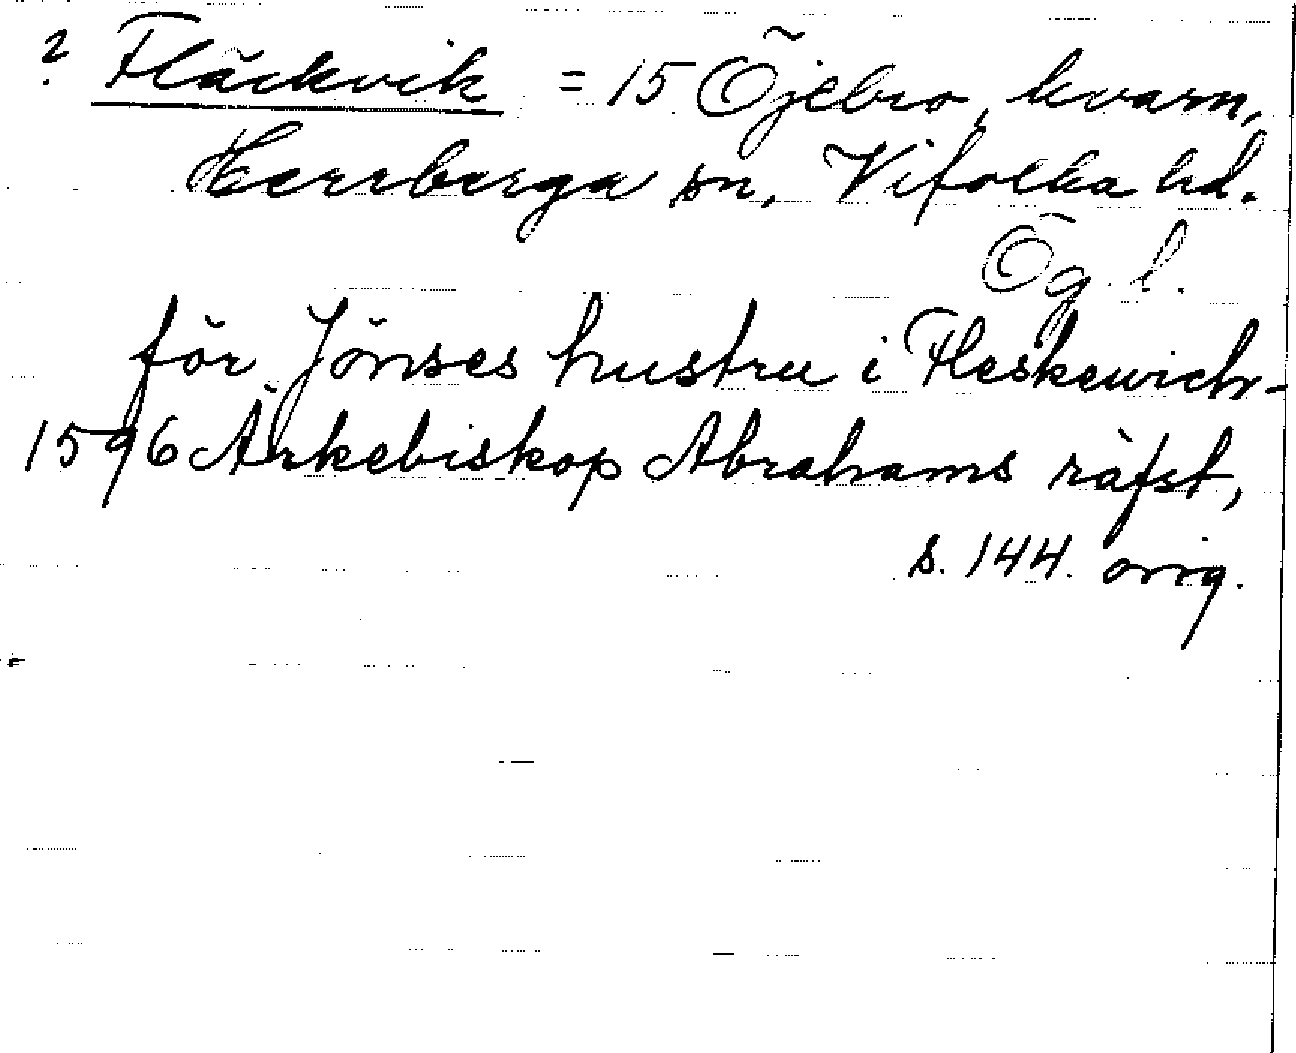 ? Fläckvik = 15 Öjebro, kvarn,
Herrberga sn, Vifolka hd.
Ög. l.
för Jönses hustru i Fleskewich -
1596 Ärkebiskop Abrahams räfst,
s. 144. orig.